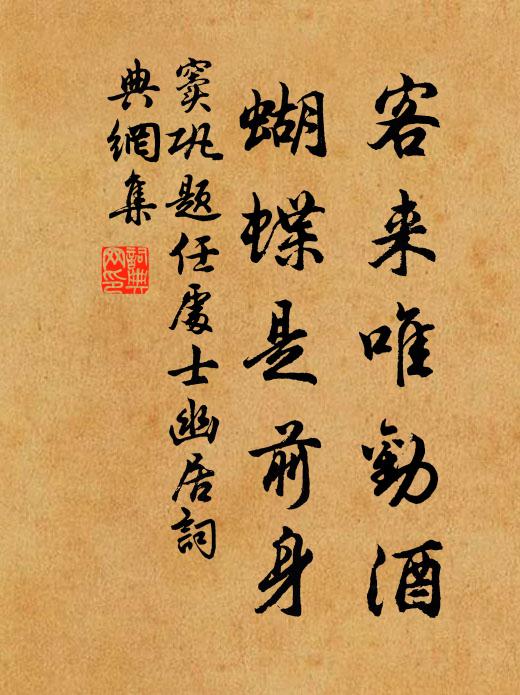 客来唯勸酒
蝴蝶是前身
竇巩題任處士幽居詞
典網集
詞典
网印